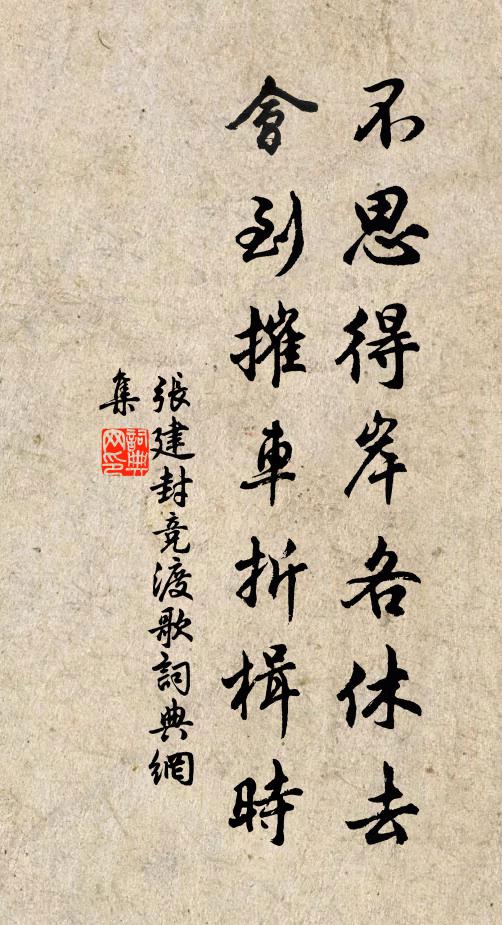 不思得岸各休去
會到摧車折楫時
張建封竞渡歌詞典網
集
詞典
网印